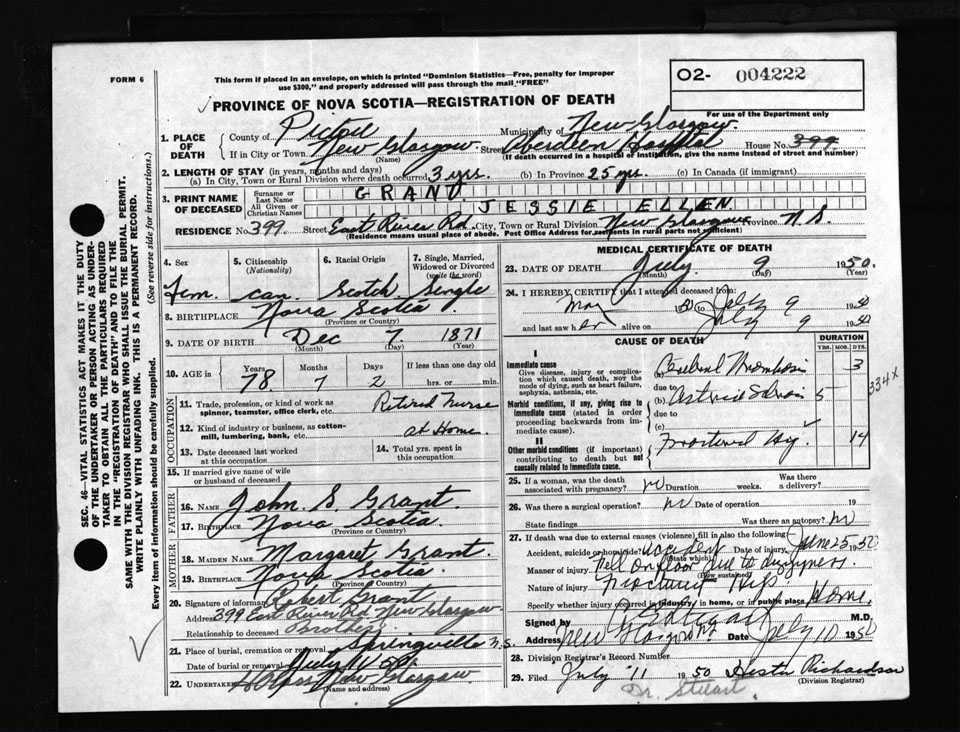 FORM 6
This form if placed in an envelope, on which is printed "Dominion Statistics—Free, penalty for improper
use $300," and properly addressed will pass through the mail "FREE"
O2- 004222
For use of the Department only
PROVINCE OF NOVA SCOTIA—REGISTRATION OF DEATH
1. PLACE OF DEATH
County of Pictou Municipality of New Glasgow
If in City or Town New Glasgow Street Aberdeen Hospital House No. 399
(Name) (If death occurred in a hospital or institution, give the name instead of street and number)
2. LENGTH OF STAY (in years, months and days)
(a) In City, Town or Rural Division where death occurred 3 yrs. (b) In Province 25 yrs. (c) In Canada (if immigrant)
3. PRINT NAME OF DECEASED
Surname or Last Name GRANT
All Given or Christian Names JESSIE ELLEN
RESIDENCE No. 399 Street East River Rd. City, Town or Rural Division New Glasgow Province N.S.
(Residence means usual place of abode. Post Office Address for residents in rural parts not sufficient)
4. Sex 5. Citizenship (Nationality) 6. Racial Origin 7. Single, Married, Widowed or Divorced (write the word)
Fem. Can. Scotch Single
8. BIRTHPLACE Nova Scotia
(Province or Country)
9. DATE OF BIRTH Dec 7. 1871
(Month) (Day) (Year)
10. AGE Years Months Days If less than one day
78 7 2 hrs. or min.
OCCUPATION
11. Trade, profession, or kind of work as spinner, teamster, office clerk, etc. Retired Nurse
12. Kind of industry or business, as cotton-mill, lumbering, bank, etc. at Home.
13. Date deceased last worked at this occupation
14. Total yrs. spent in this occupation
15. If married give name of wife or husband of deceased
FATHER
16. NAME John S Grant
17. BIRTHPLACE Nova Scotia.
(Province or Country)
MOTHER
18. MAIDEN NAME Margaret Grant.
19. BIRTHPLACE Nova Scotia
(Province or Country)
20. Signature of informant Robert Grant
Address 399 East River Rd. New Glasgow
Relationship to deceased Brother
21. Place of burial, cremation or removal Springville N.S.
Date of burial or removal July 11 50
22. Undertaker New Glasgow
(Name and address)
MEDICAL CERTIFICATE OF DEATH
23. DATE OF DEATH July 9 1950.
(Month) (Day) (Year)
24. I HEREBY CERTIFY that I attended deceased from:
May 50 to July 9 1950
and last saw her alive on July 9 1950
CAUSE OF DEATH
DURATION
YRS. MOS. DYS.
I
Immediate cause
Give disease, injury or complication which caused death, not the mode of dying, such as heart failure, asphyxia, asthenia, etc.
(a) Cerebral Thrombosis 3
due to
Morbid conditions, if any, giving rise to immediate cause (stated in order proceeding backwards from immediate cause).
(b) 5
due to
(c)
II
Other morbid conditions (if important) contributing to death but not causally related to immediate cause.
Fractured Hip 14
334X
25. If a woman, was the death associated with pregnancy? no Duration weeks. Was there a delivery?
26. Was there a surgical operation? no Date of operation 19
State findings Was there an autopsy? no
27. If death was due to external causes (violence), fill in also the following:
Accident, suicide or homicide? Accident Date of injury June 25 1950
(State which)
Manner of injury Fell on floor due to dizziness.
(How sustained)
Nature of injury Fractured Hip.
Specify whether injury occurred in industry, in home, or in public place Home.
Signed by M.D.
Address New Glasgow NS Date July 10 1950
28. Division Registrar's Record Number
29. Filed July 11 1950 Hester Richardson
(Division Registrar)
Dr. Stewart
SEC. 46—VITAL STATISTICS ACT MAKES IT THE DUTY
OF THE UNDERTAKER OR PERSON ACTING AS UNDER-
TAKER TO OBTAIN ALL THE PARTICULARS REQUIRED
IN THE "REGISTRATION OF DEATH" AND TO FILE THE
SAME WITH THE DIVISION REGISTRAR WHO SHALL ISSUE THE BURIAL PERMIT.
WRITE PLAINLY WITH UNFADING INK. THIS IS A PERMANENT RECORD.
Every item of information should be carefully supplied. (See reverse side for instructions.)